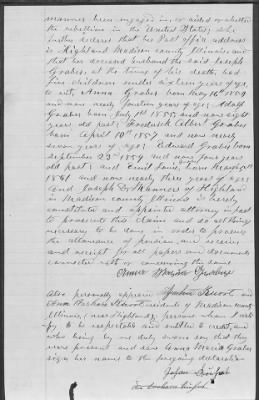 manner been engaged in or aided or abetted
the rebellion in the United States; she
further declares that her Post office address
is Highland Madison County Illinois and
that her deceased husband the said Joseph
Graber, at the time of his death, had
five children under sixteen years of age
to wit, Anna Graber born May 16th 1850
and now nearly fourteen years of age; Adolf
Graber born July 1st 1855 and now eight
years old past; Friedrich Albert Graber
born April 10th 1857 and now nearly
seven years of age; Edward Graber born
September 23rd 1859 and now four years
old past; and Emil born
1861 and now nearly three years of age;
And Joseph of Highland
in Madison County Illinois is hereby
constitute and appointed attorney in fact
to prosecute this claim and do all things
necessary to be done in order to procure
the allowance of pension, and receive
and receipt for all papers and documents
connected with or concerning the same
Anna Maria Graber
Also personally appeared and
residents of Madison County
Illinois, near Highland, persons whom I certi-
fy to be respectable and entitled to credit, and
who being by me duly sworn say that they
were present and saw Anna Maria Graber
sign her name to the foregoing declaration